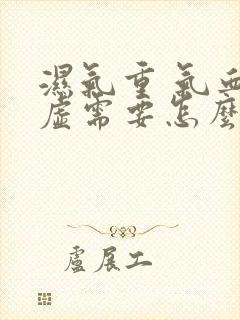 濕氣重氣血
虛需要怎麼
盧展工